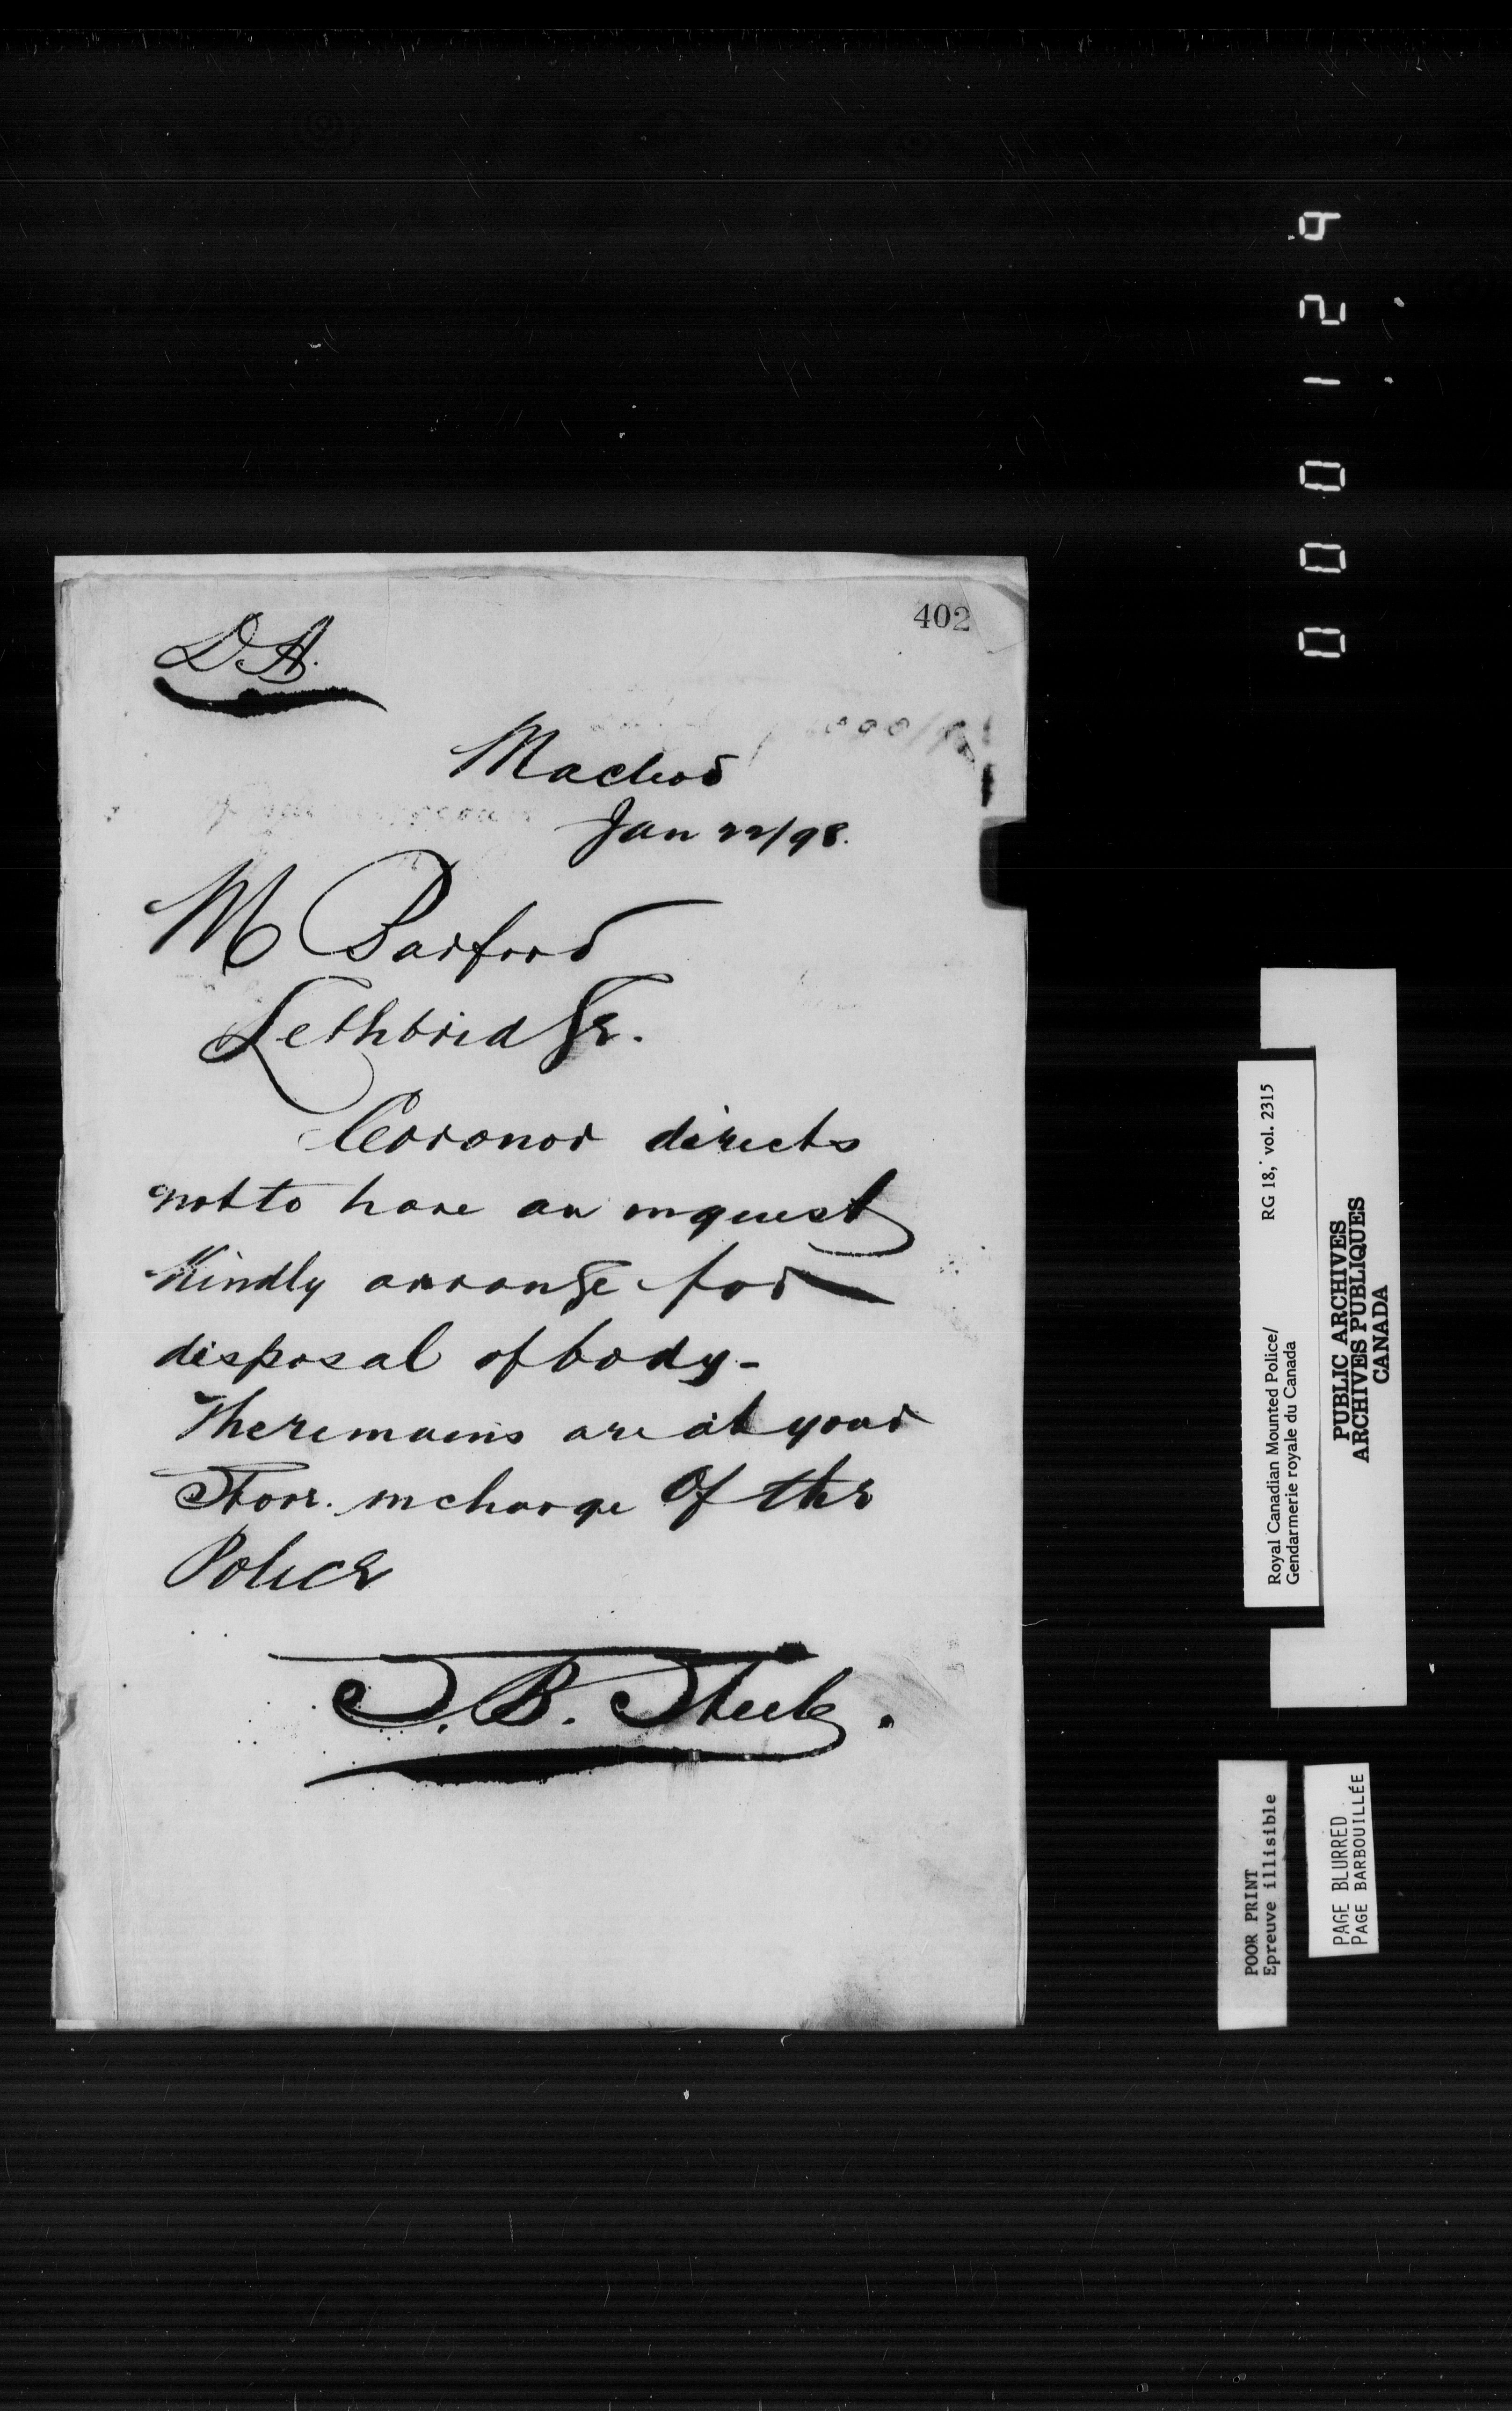 402
D.H.
Macleod
Jan 22/98.
M Barford
Lethbridge.
Coronor directs
not to have an inquest
Kindly arrange for
disposal of body -
The remains are at your
Store. in charge Of the
Police
S. B. Steele.
000129
RG 18, vol. 2315
Royal Canadian Mounted Police/
Gendarmerie royale du Canada
PUBLIC ARCHIVES
ARCHIVES PUBLIQUES
CANADA
POOR PRINT
Epreuve illisible
PAGE BLURRED
PAGE BARBOUILLÉE